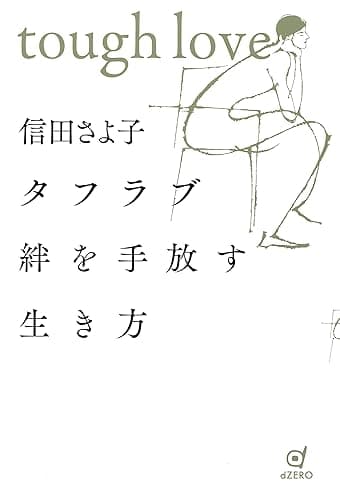 tough love
信田さよ子
タフラブ
絆を手放す
生き方
dZERO